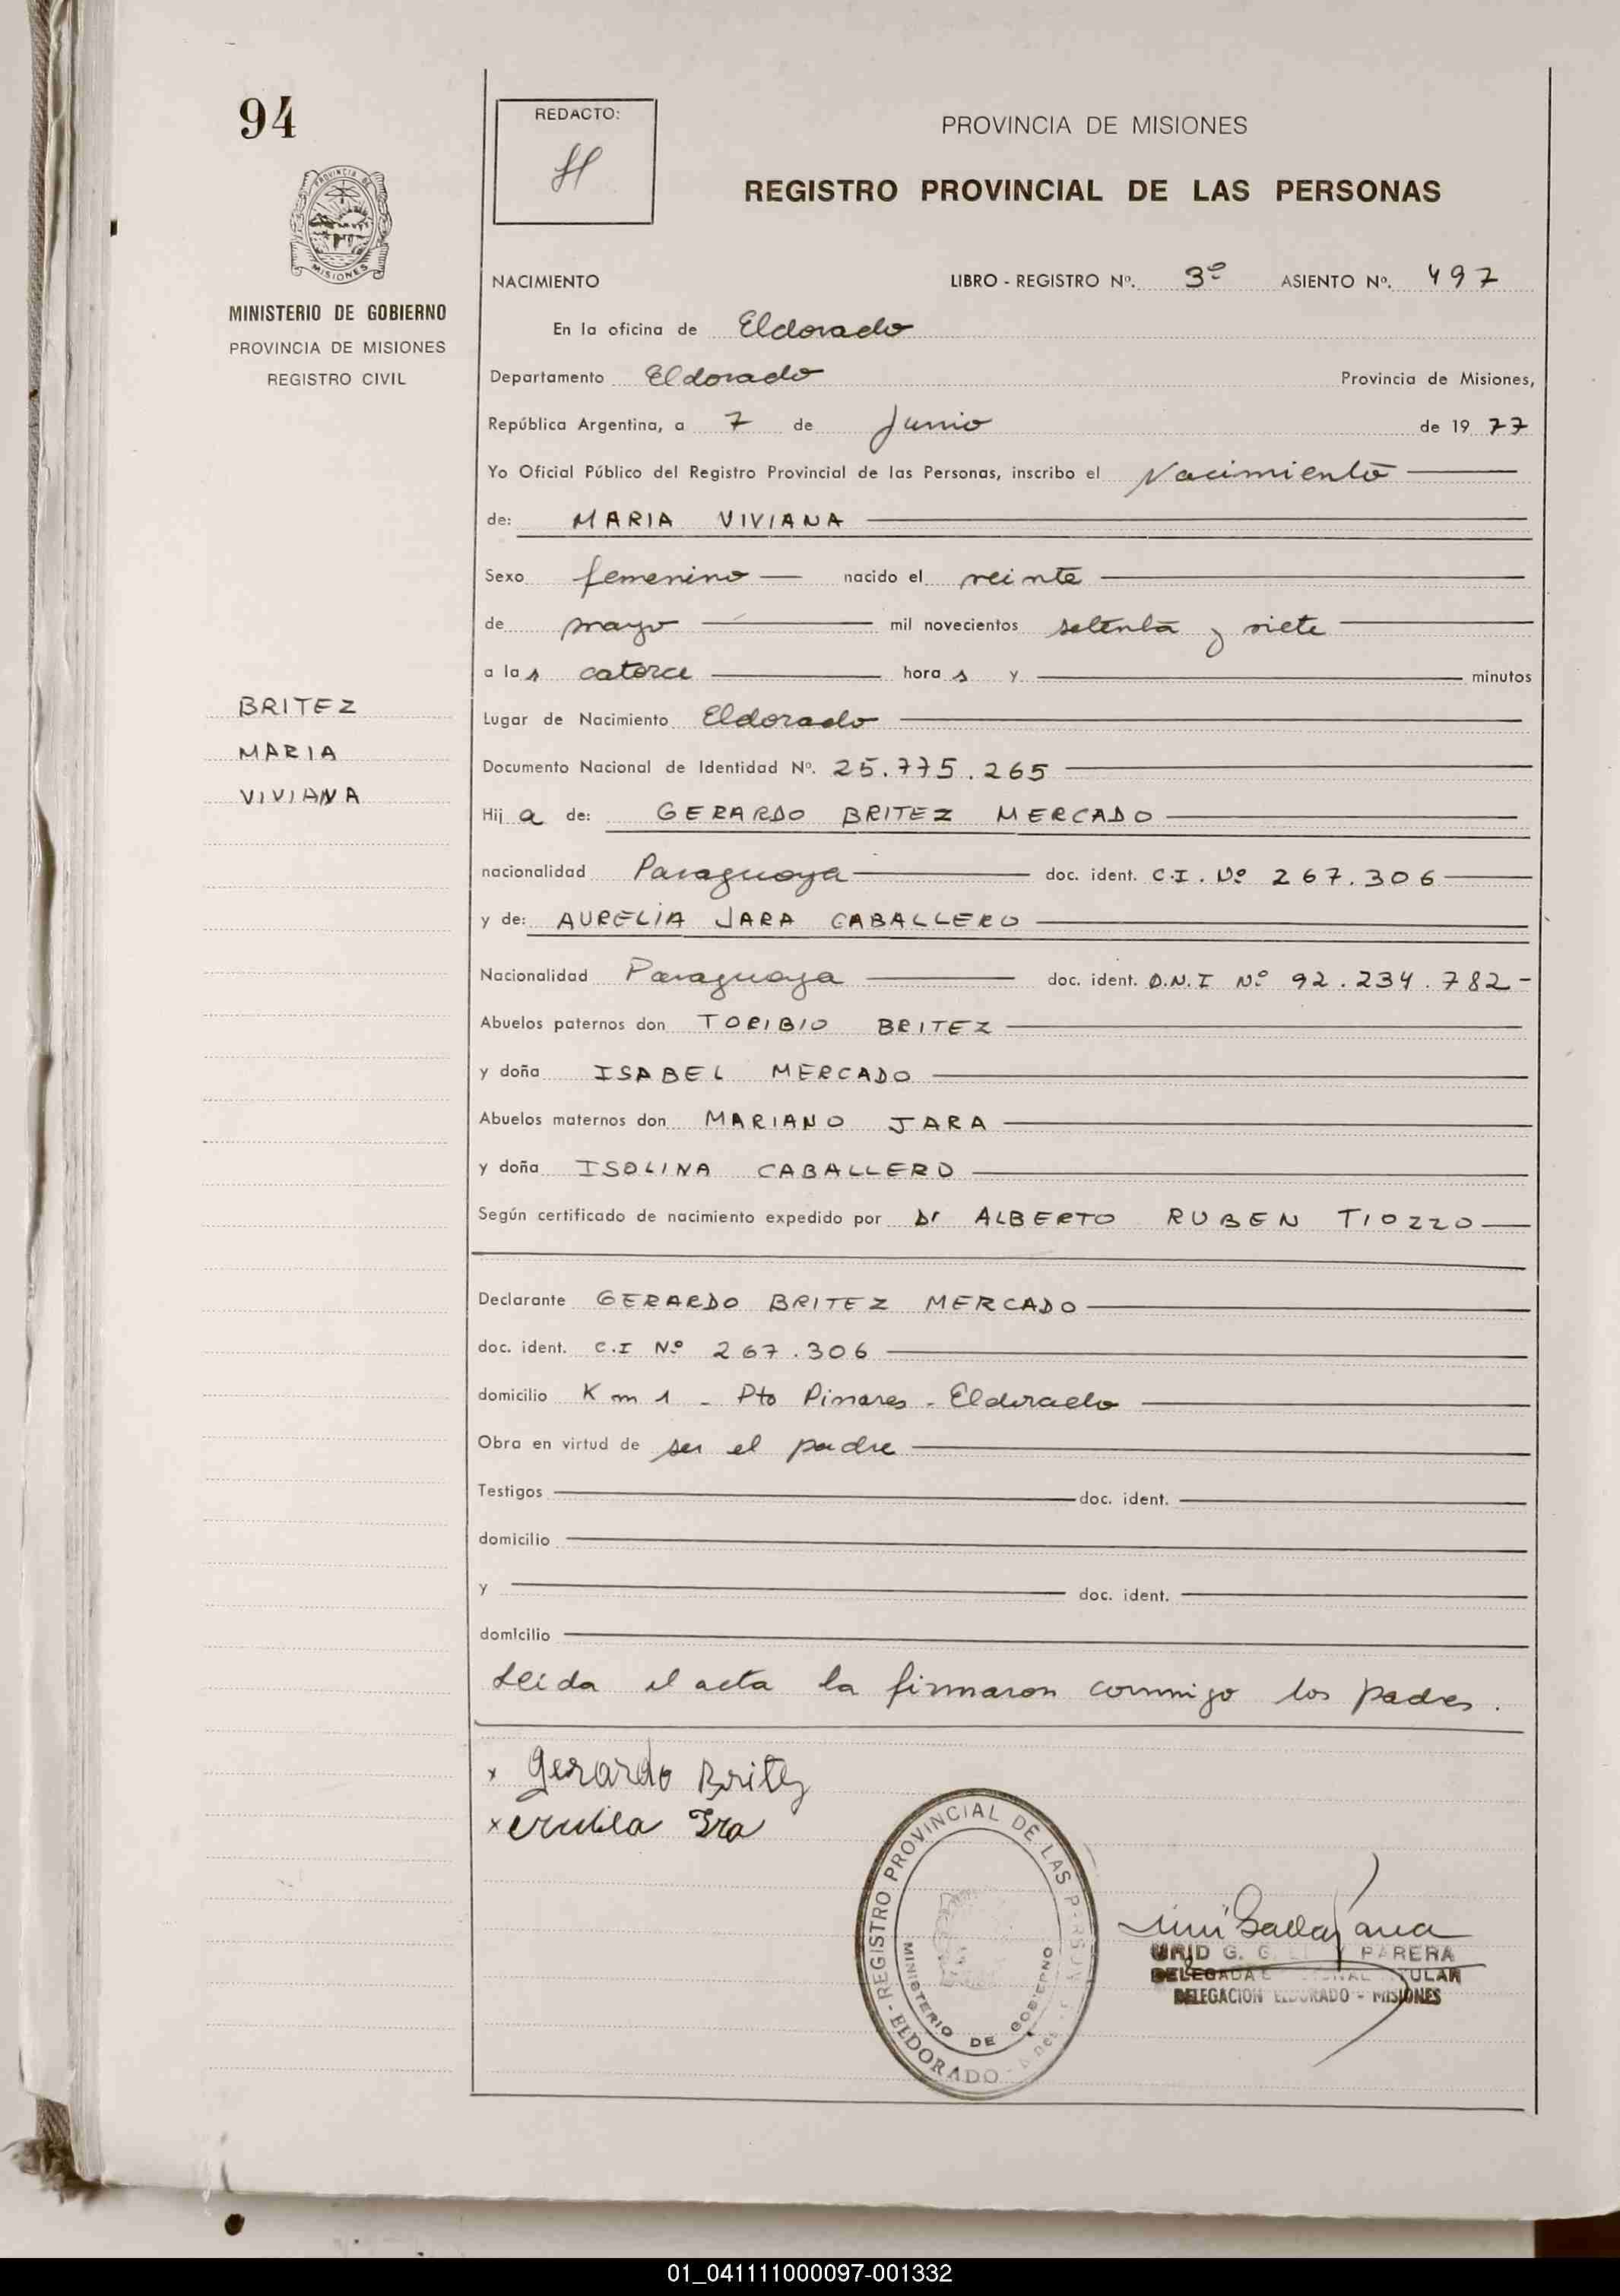 94
REDACTO:
PROVINCIA DE MISIONES
REGISTRO PROVINCIAL DE LAS PERSONAS
PROVINCIA DE
MISIONES
MINISTERIO DE GOBIERNO
PROVINCIA DE MISIONES
REGISTRO CIVIL
NACIMIENTO LIBRO - REGISTRO Nº. 3º ASIENTO Nº. 497
En la oficina de Eldorado
Departamento Eldorado Provincia de Misiones,
República Argentina, a 7 de Junio de 19 77
Yo Oficial Público del Registro Provincial de las Personas, inscribo el Nacimiento
de: MARIA VIVIANA
Sexo femenino nacido el veinte
de mayo mil novecientos setenta y siete
a las catorce horas y minutos
BRITEZ
MARIA
VIVIANA
Lugar de Nacimiento Eldorado
Documento Nacional de Identidad Nº. 25.775.265
Hija de: GERARDO BRITEZ MERCADO
nacionalidad Paraguaya doc. ident. C.I. Nº 267.306
y de: AURELIA JARA CABALLERO
Nacionalidad Paraguaya doc. ident. D.N.I Nº 92.234.782-
Abuelos paternos don TORIBIO BRITEZ
y doña ISABEL MERCADO
Abuelos maternos don MARIANO JARA
y doña ISOLINA CABALLERO
Según certificado de nacimiento expedido por Dr ALBERTO RUBEN TIOZZO
Declarante GERARDO BRITEZ MERCADO
doc. ident. C.I Nº 267.306
domicilio Km 1 - Pto Pinares - Eldorado
Obra en virtud de ser el padre
Testigos doc. ident.
domicilio
y doc. ident.
domicilio
Leida el acta la firmaron conmigo los padres.
x Gerardo Britez
x
REGISTRO PROVINCIAL DE LAS PERSONAS
MINISTERIO DE GOBIERNO
- ELDORADO -
G. PARERA
DELEGADA TITULAR
DELEGACION ELDORADO - MISIONES
01_041111000097-001332